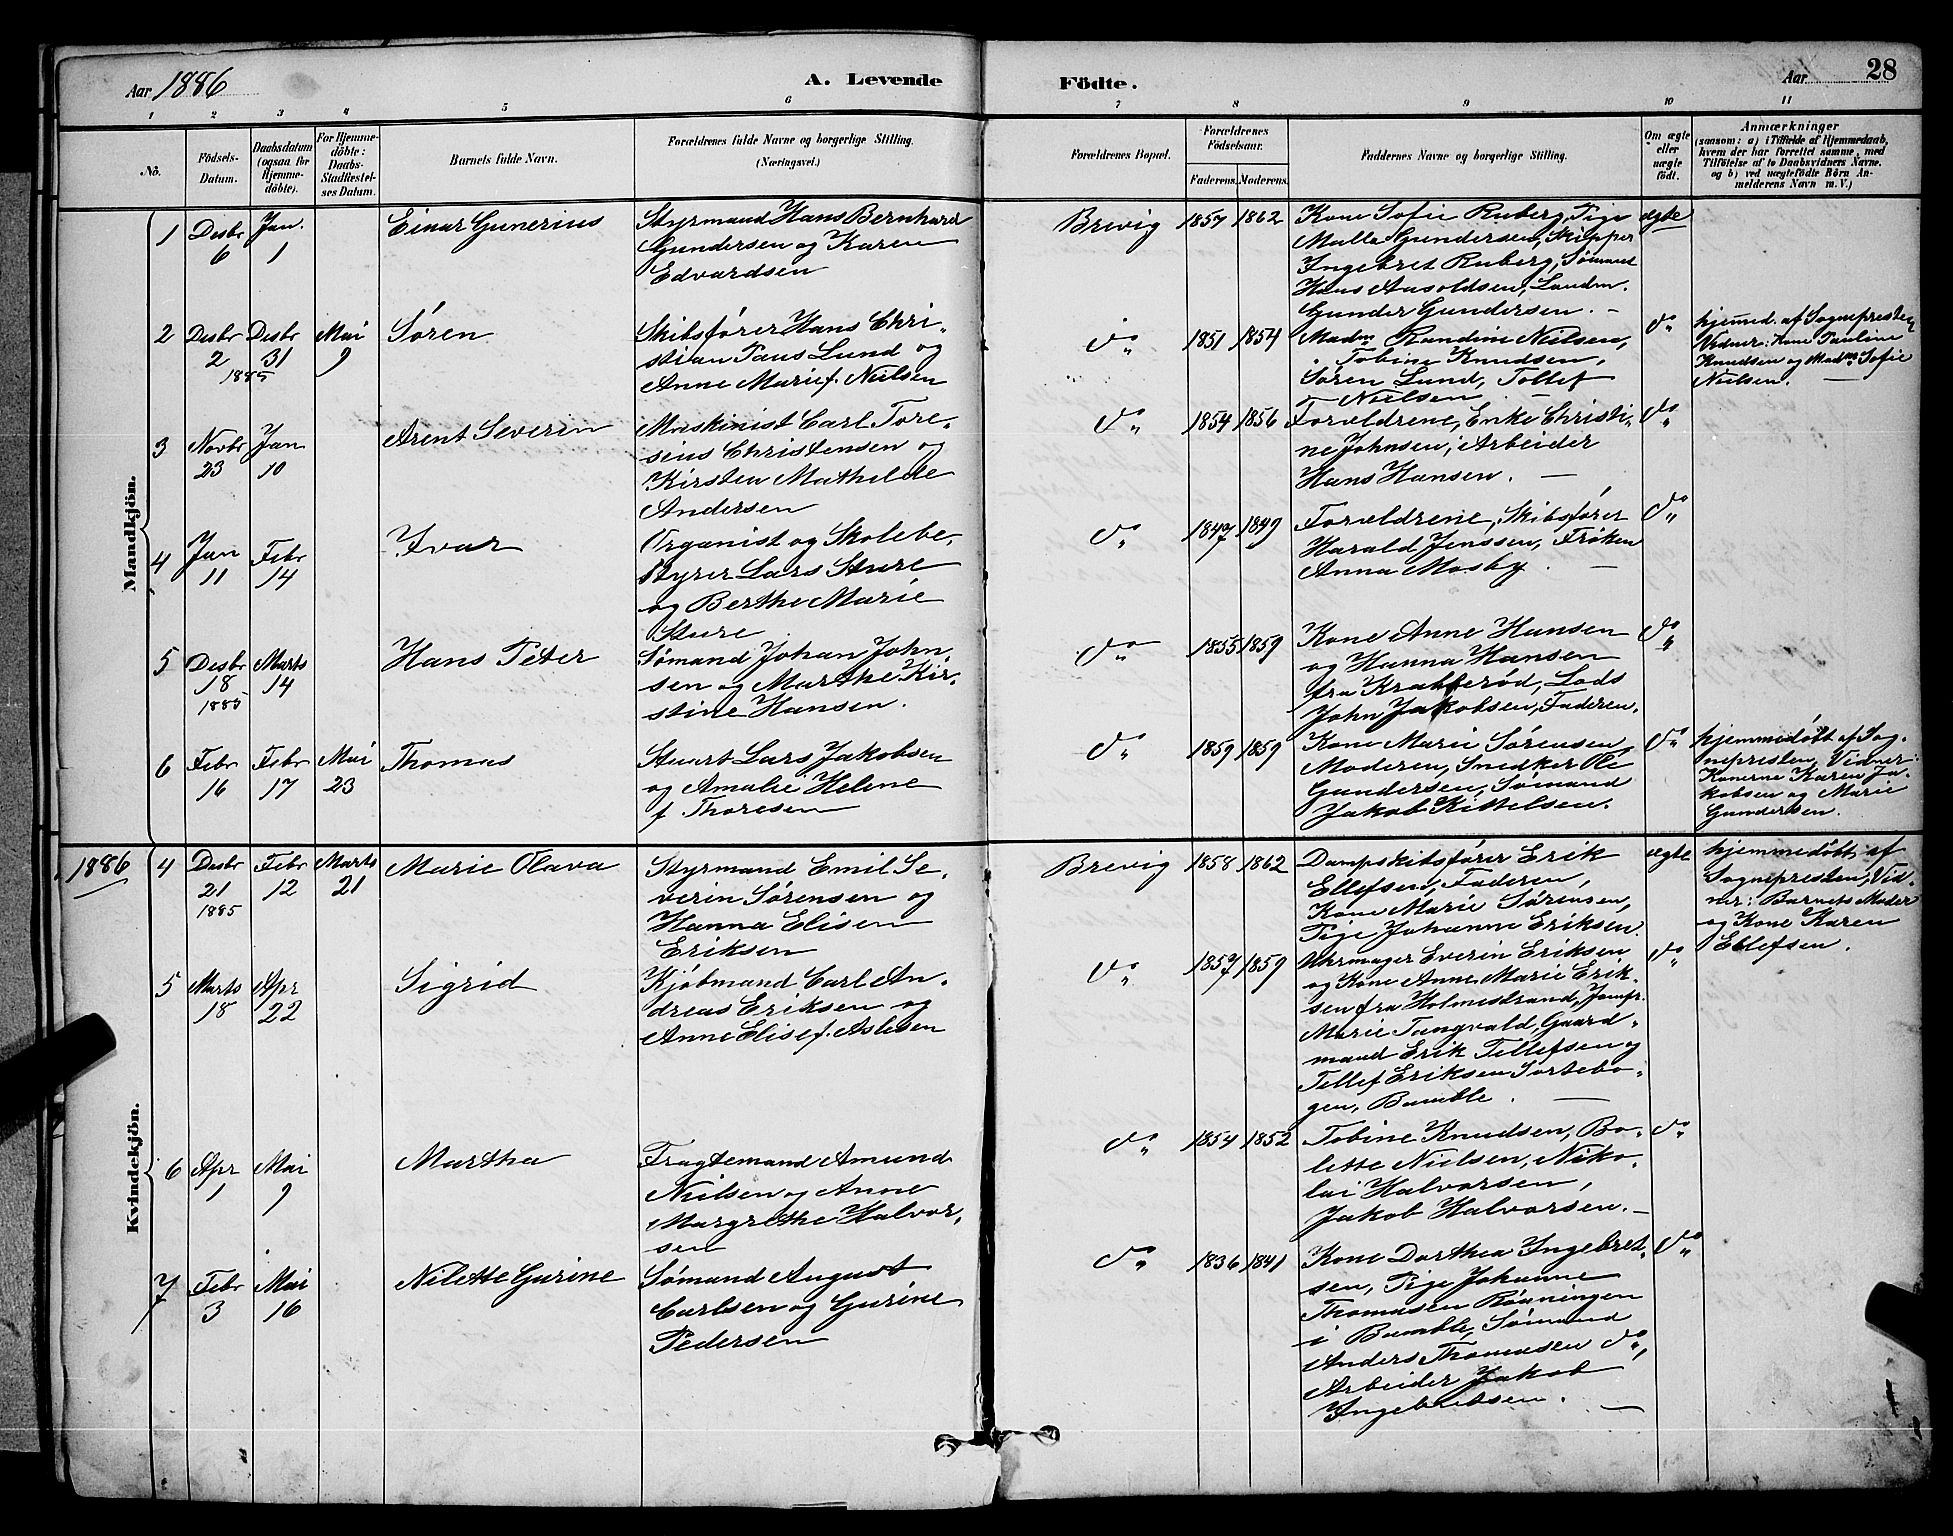 Aar 1886
A. Levende
Födte.
Aar
28
1 2 3 4 5 6 7 8 9 10 11
Nö.
Födsels-
Datum.
Daabsdatum
(ogsaa for
Hjemme-
döbte).
For Hjemme-
döbte:
Daabs-
Stadfæstel-
ses Datum.
Barnets fulde Navn.
Forældrenes fulde Navne og borgerlige Stilling.
(Næringsvei.)
Forældrenes Bopæl.
Forældrenes
Födselsaar.
Faderens. Moderens.
Faddernes Navne og borgerlige Stilling.
Om ægte
eller
uægte
födt.
Anmærkninger
(saasom: a) i Tilfælde af Hjemmedaab,
hvem der har forrettet samme, med
Tilföielse af to Daabsvidners Navne,
og b) ved uægtefödte Börn An-
melderens Navn m. V.)
Mandkjön.
1
Desbr
6
Jan.
1
Einar Gunerius
Styrmand Hans Bernhard
Gundersen og Karen
Edvardsen
Brevig
1857
1862
Kone Sofie Ruberg, Pige
Malla Gundersen, Skipper
Ingebret Ruberg, Sømand
Hans Aasoldsen, Landm.
Gunder Gundersen. -
ægte
2
Desbr
2
1885
Desbr
31
Mai
9
Søren
Skibsfører Hans Chri-
stian Paus Lund og
Anne Marie f. Nielsen
do
1851
1854
Madm Randine Nielsen,
" Tobine Knudsen,
Søren Lund, Tollef
Nielsen. -
do
hjemmed. af Sognepresten
Vidner: Kone Pauline
Knudsen og Madm Sofie
Nielsen. -
3
Novbr
23
Jan
10
Arent Severin
Maskinist Carl Tore-
sius Christensen og
Kirsten Mathilde
Andersen
do
1854
1856
Forældrene, Enke Christi-
ne Johnsen, Arbeider
Hans Hansen. -
do
4
Jan
11
Febr
14
Ivar
Organist og Skolebe-
styrer Lars Sture
og Berthe Marie
Sture
do
1847
1849
Forældrene, Skibsfører
Harald Jenssen, Frøken
Anna Mosby. -
do
5
Desbr
18
1885
Marts
14
Hans Peter
Sømand Johan John-
sen og Marthe Kir-
stine Hansen.
do
1855
1859
Kone Anne Hansen
og Hanna Hansen
fra Krabberød, Lods
John Jakobsen, Faderen.
do
6
Febr
16
Febr
17
Mai
23
Thomas
Stuert Lars Jakobsen
og Amalie Helene
f. Thoresen
do
1859
1859
Kone Marie Sørensen
Moderen, Snedker Ole
Gundersen, Sømand
Jakob Kittelsen.
do
hjemmedøbt af Sog-
nepresten, Vidner:
Konerne Karen Ja-
kobsen og Marie
Gundersen.
Kvindekjön.
1886
4
Desbr
21
1885
Febr
12
Marts
21
Marie Olava
Styrmand Emil Se-
verin Sørensen og
Hanna Elisen
Eriksen
Brevig
1858
1862
Dampskibsfører Erik
Ellefsen, Faderen,
Kone Marie Sørensen,
Pige Johanne Eriksen.
ægte
hjemmedøbt af
Sognepresten, Vid-
ner: Barnets Moder
og Kone Karen
Ellefsen.
5
Marts
18
Apr
22
Sigrid
Kjøbmand Carl An-
dreas Eriksen og
Anne Elise f. Aslesen
do
1857
1859
Uhrmager Everin Eriksen
og Kone Anne Marie Erik-
sen fra Holmestrand, Jomfr.
Marie Tangvald, Gaard-
mand Erik Tellefsen og
Tellef Eriksen Sortebo-
gen, Bamble. -
do
6
Apr
1
Mai
9
Martha
Fragtemand Amund
Nielsen og Anne
Margrethe Halvor-
sen
do
1854
1852
Tobine Knudsen, Bo-
lette Nielsen, Niko-
lai Halvorsen,
Jakob Halvorsen. -
do
7
Febr
3
Mai
16
Nilette Gurine
Sømand August
Carlsen og Gurine
Pedersen
do
1836
1841
Kone Dorthea Ingebret-
sen, Pige Johanne
Thomasen Rønningen
i Bamble, Sømand
Anders Thomasen do,
Arbeider Jakob
Ingebretsen. -
do